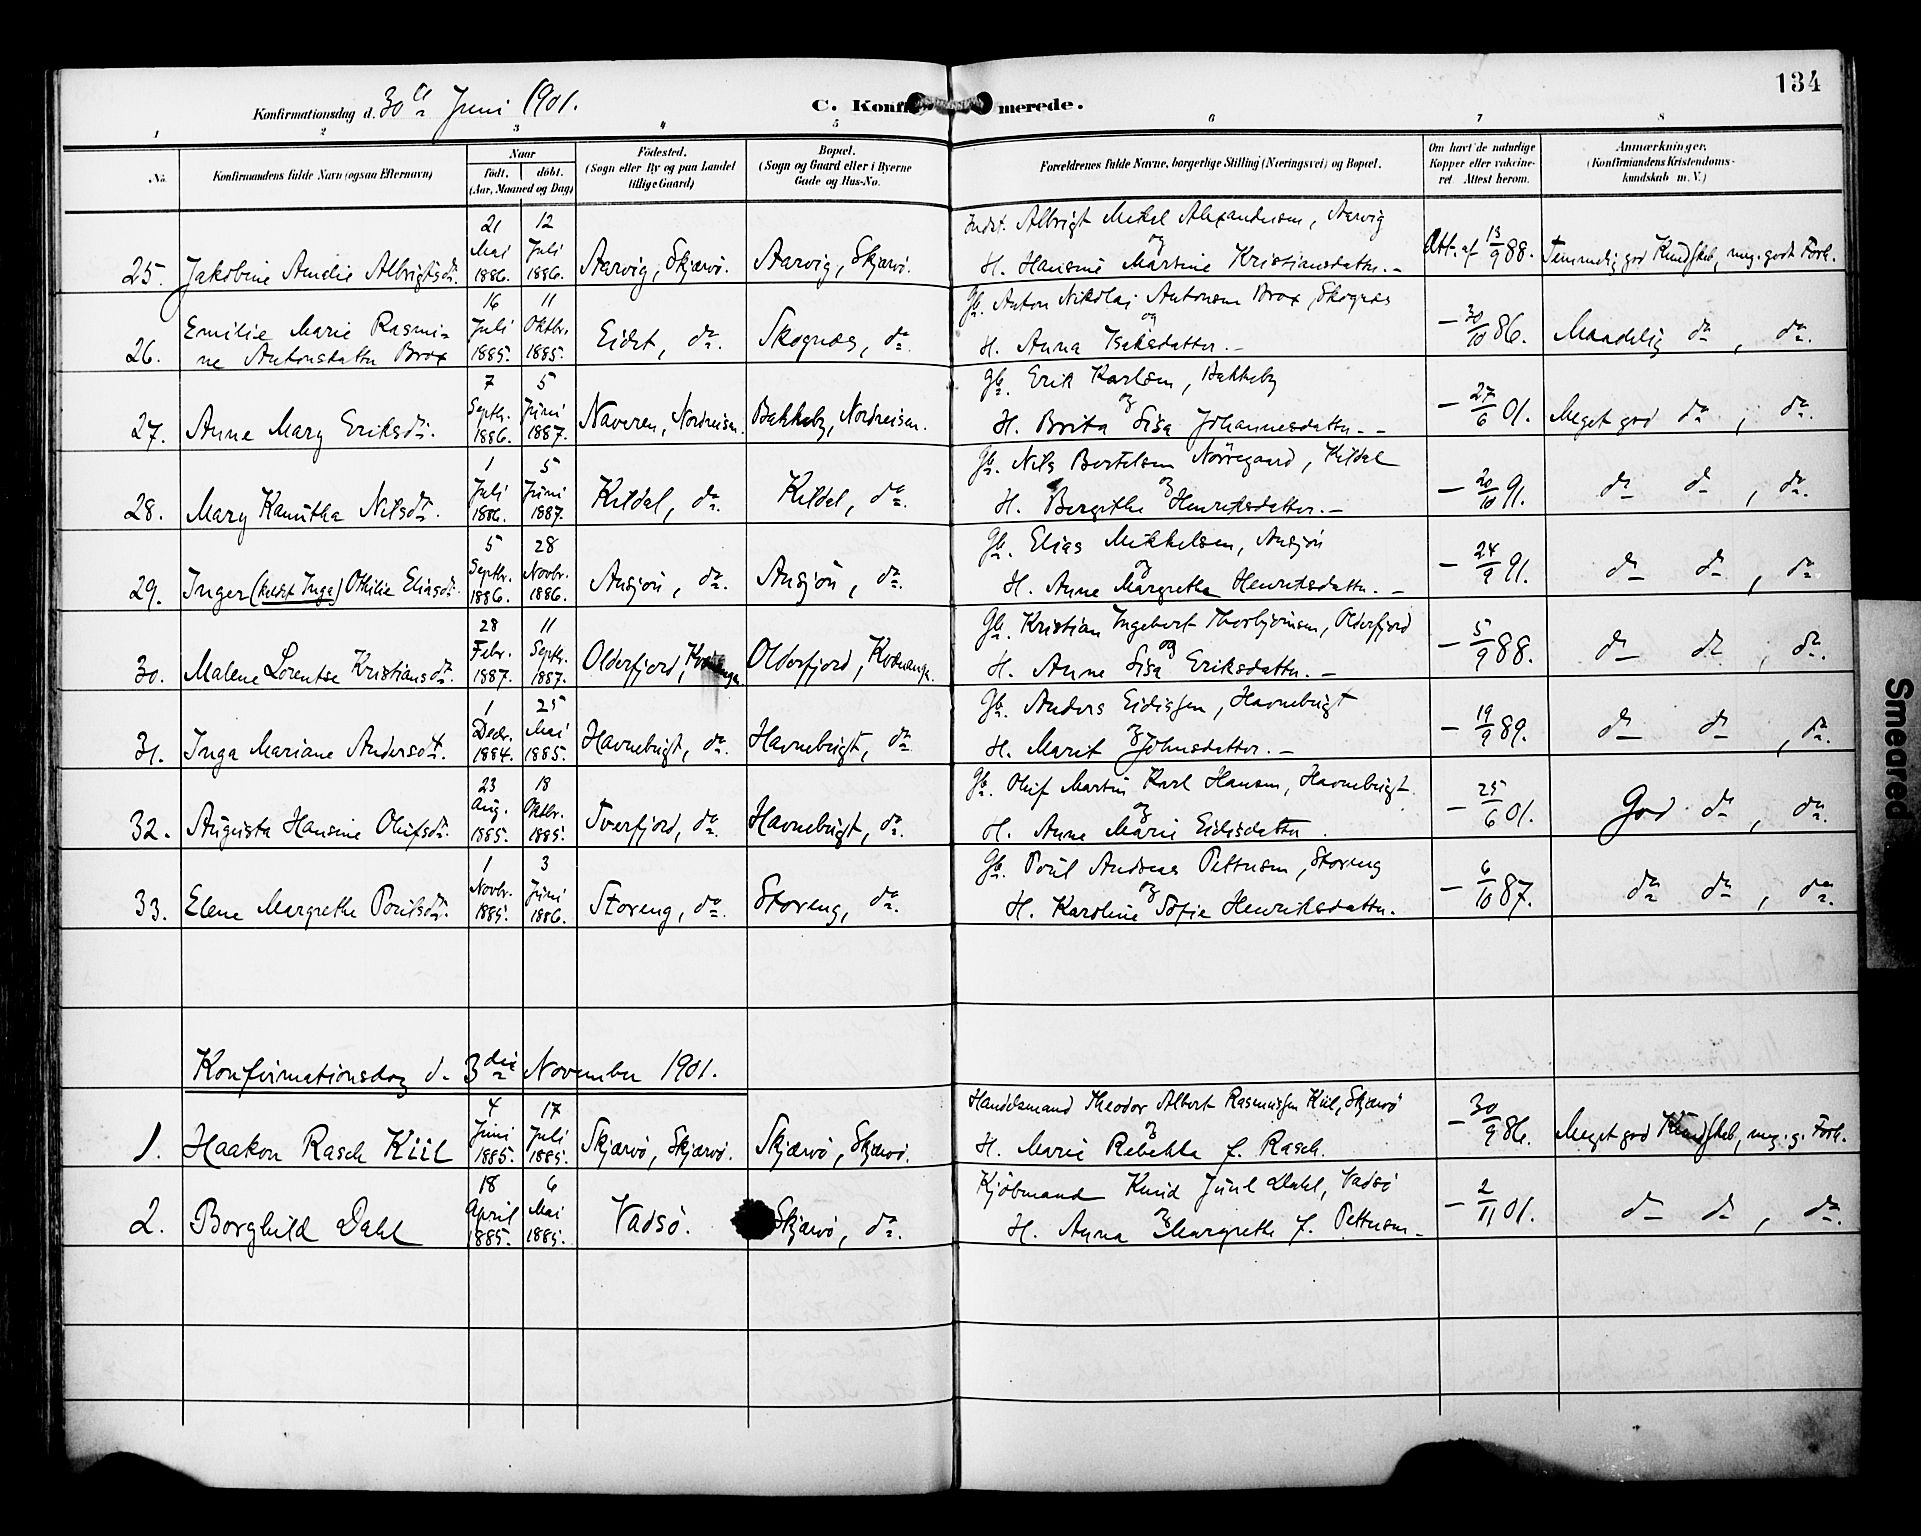 134
Konfirmationsdag d. 30te Juni 1901.
C. Konfirmerede.
1 2 3 4 5 6 7 8
No. Konfirmandens fulde Navn (ogsaa Efternavn) Naar født. døbt. (Aar, Maaned og Dag) Fødested. (Sogn eller By og paa Landet tillige Gaard) Bopæl. (Sogn og Gaard eller i Byerne Gade og Hus-No. Forældrenes fulde Navne, borgerlige Stilling (Næringsvei) og Bopæl. Om havt de naturlige Kopper eller vaccineret. Attest herom. Anmærkninger, (Konfirmandens Kristendomskundskab m. V.)
25. Jakobine Amalie Albrigtsdtr. 21 Mai 1886. 12 Juli 1886. Aarvig, Skjærvö. Aarvig, Skjærvö. Indst. Albrigt Mikal Alexandersen, Aarvig
og H. Hansine Martine Kristiansdatter. Att. af 13/9 88. Temmelig god Kundskab, meg. godt Forh.
26. Emilie Marie Rasmine Antonsdatter Brox 16 Juli 1885. 11 Oktbr. 1885. Eidet, do. Skognæs, do. Gb. Anton Nikolai Antonsen Brox, Skognæs
og H. Anna Isaksdatter. – 30/10 86. Maadelig do, do.
27. Anne Mary Eriksdtr. 7 Septbr. 1886. 5 Juni 1887. Naveren, Nordreisen. Bakkeby, Nordreisen. Gb. Erik Karlsen, Bakkeby
og H. Brita Lisa Johannesdatter. – 27/6 01. Meget god do, do.
28. Mary Kanutha Nilsdtr. 1 Juli 1886. 5 Juni 1887. Kildal, do. Kildal, do. Gb. Nils Bertelsen Nörregaard, Kildal
og H. Bergithe Henriksdatter. – 20/10 91. do do, do.
29. Inger (kaldt Inga) Othilie Eliasdtr. 5 Septbr. 1886. 28 Novbr. 1886. Ansjön, do. Ansjön, do. Gb. Elias Mikkelsen, Ansjön
og H. Anne Margrethe Henriksdatter. – 24/9 91. do do, do
30. Malene Lorentse Kristiansdtr. 28 Febr. 1887. 11 Septbr. 1887. Olderfjord, Kvænanger. Olderfjord, Kvænanger. Gb. Kristian Ingebort Thorbjörnsen, Olderfjord
og H. Anne Lisa Eriksdatter. – 5/9 88. do do, do.
31. Inga Mariane Andersdtr. 1 Decbr. 1884. 25 Mai 1885. Havnebugt, do. Havnebugt, do Gb. Anders Eidissen, Havnebugt
og H. Marit Johnsdatter. – 19/9 89. do do, do.
32. Augusta Hansine Olufsdtr. 23 Aug. 1885. 18 Oktbr. 1885. Tverfjord, do. Havnebugt, do. Gb. Oluf Martin Karl Hansen, Havnebugt.
og H. Anne Marie Eidisdatter. – 25/6 01. God do, do.
33. Elene Margrethe Poulsdtr. 1 Novbr. 1885. 3 Juni 1886. Storeng, do. Storeng, do. Gb. Poul Andreas Pettersen, Storeng
og H. Karoline Sofie Henriksdatter. – 6/10 87. do do, do.
Konfirmationsdag d. 3die November 1901.
1. Haakon Rasch Kiil 4 Juni 1885. 17 Juli 1885. Skjærvö, Skjærvö. Skjærvö, Skjærvö. Handelsmand Theodor Albert Rasmussen Kiil, Skjærvö
og H. Marie Rebekka f. Rasch. – 30/9 86. Meget god Kundskab, meg. g. Forh.
2. Borghild Dahl 18 April 1885. 6 Mai 1885. Vadsö. Skjærvö, do. Kjöbmand Knud Juul Dahl, Vadsö
og H. Anna Margrethe f. Pettersen. – 2/11 01. do do, do.
Smeared